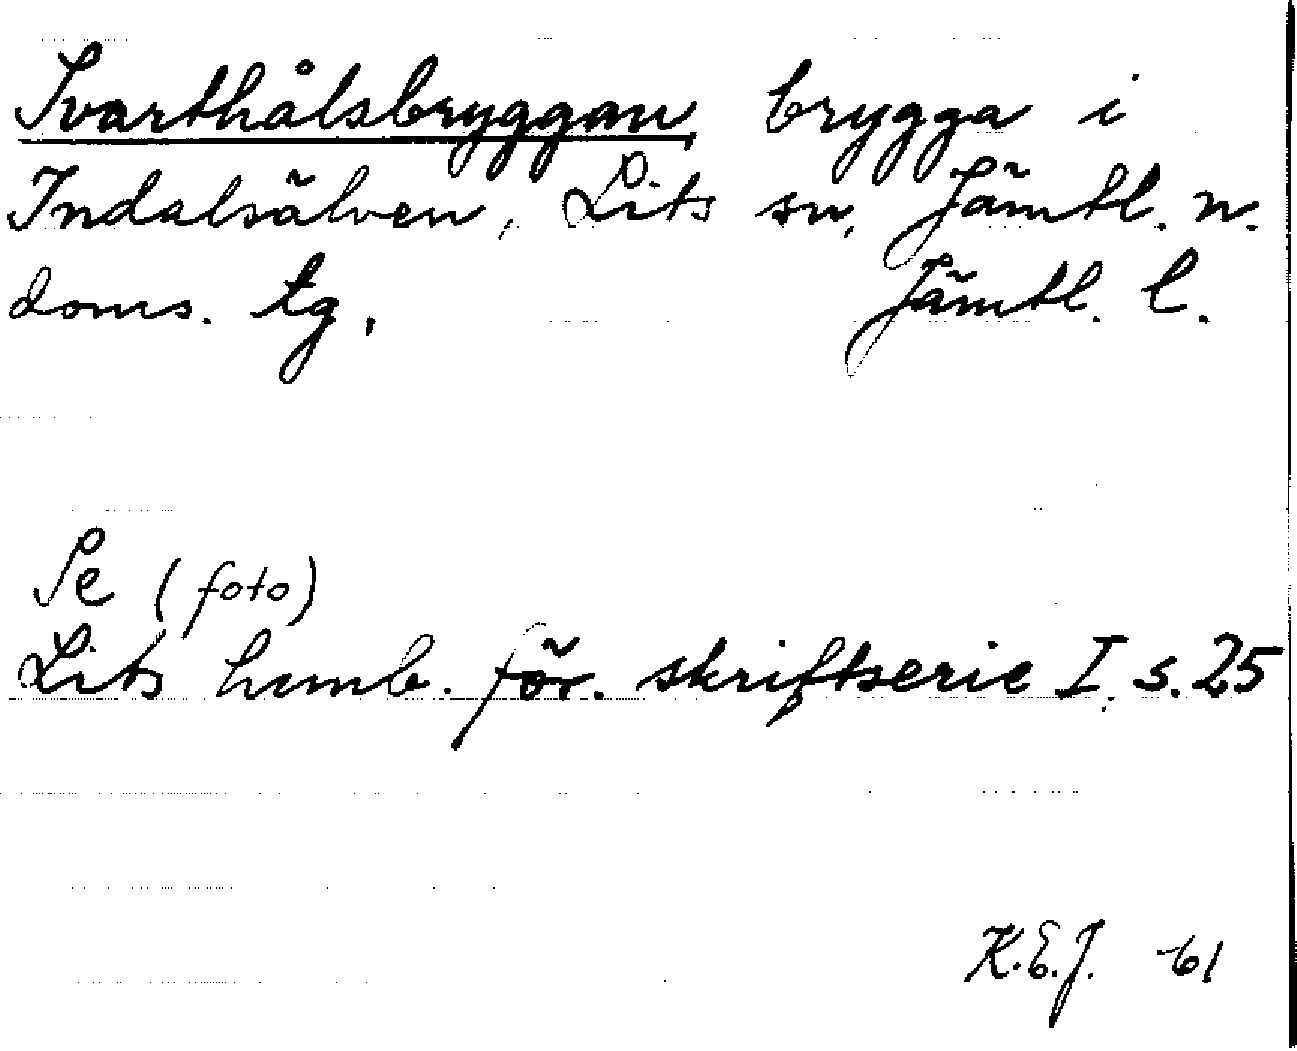 Svarthålsbryggan, brygga i
Indalsälven, Lits sn, Jämtl. n.
doms. tg, Jämtl. l.
Se (foto)
Lits hemb. för. skriftserie I, s. 25
K.E.J. -61